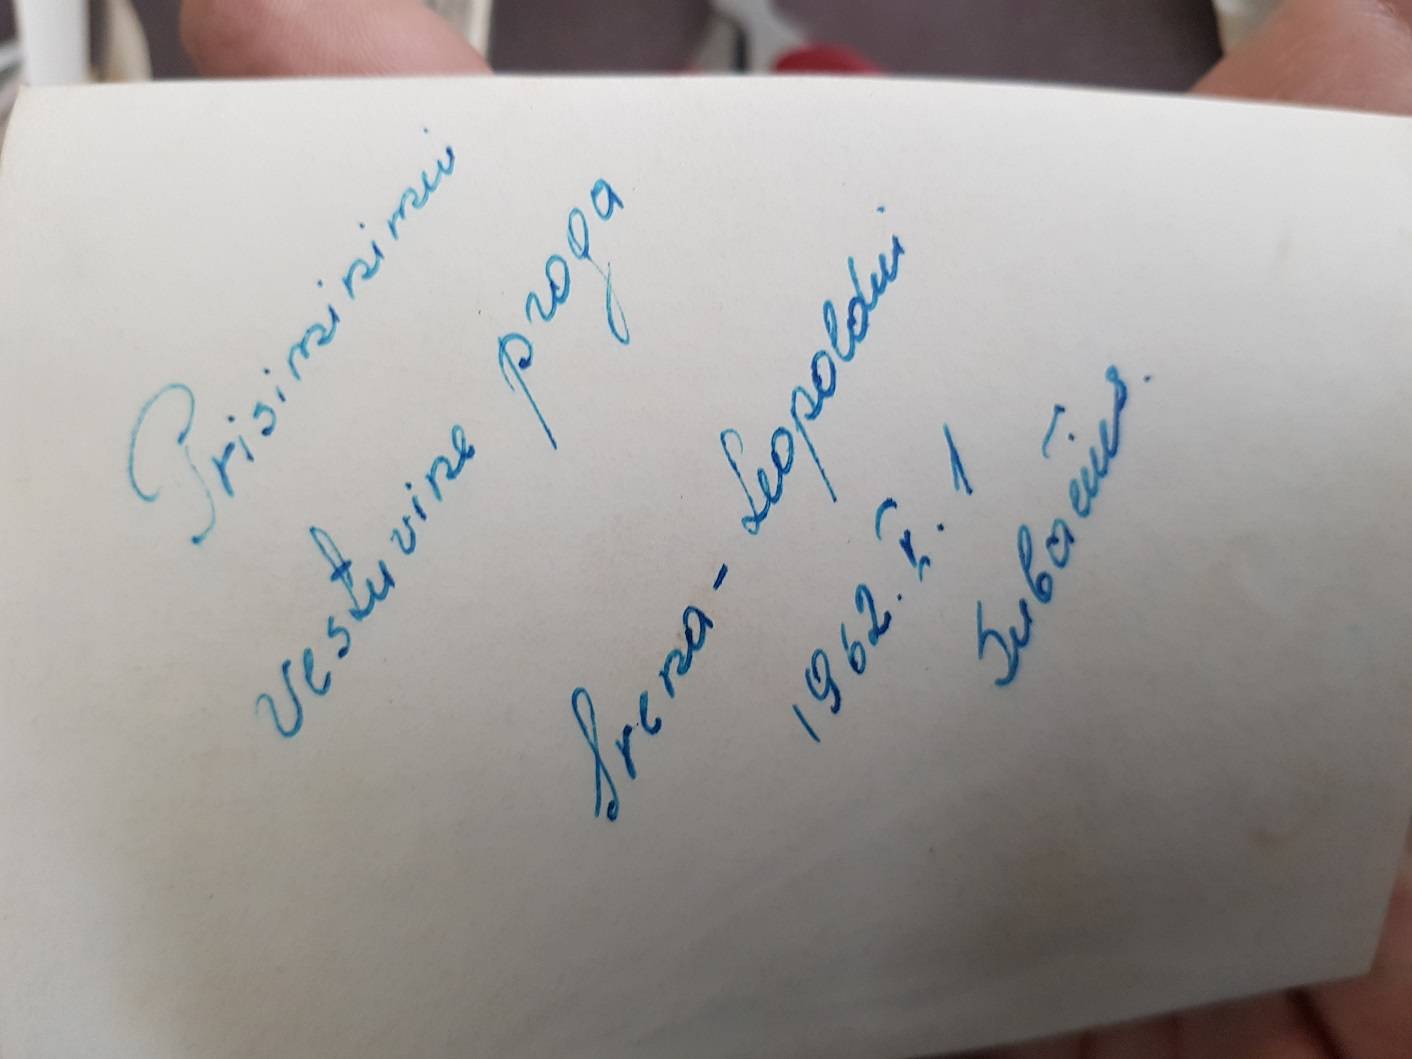 Prisiminimui
vestuvine proga
Irena - Leopoldui
1962. X. 1